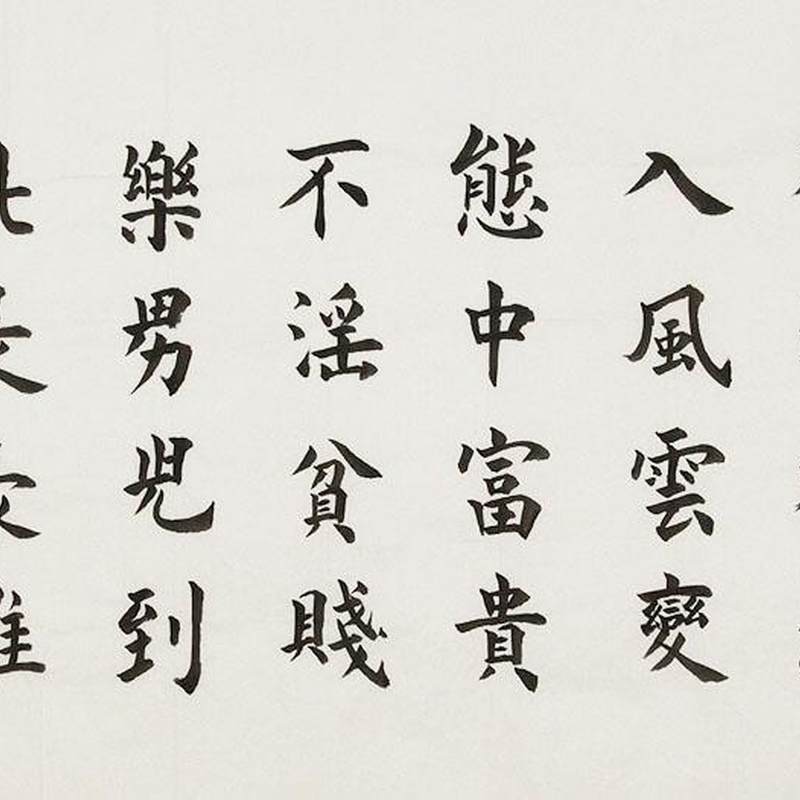 入風雲變
態中富貴
不淫貧賤
樂男兒到